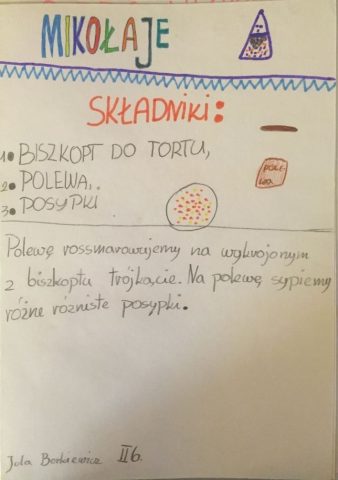 MIKOŁAJE
SKŁADNIKI:
1. BISZKOPT DO TORTU,
2. POLEWA,
POLE-
WA
3. POSYPKI
Polewę rossmarowujemy na wykrojonym
z biszkoptu trójkącie. Na polewę sypiemy
różne rózniste posypki.
Jola II b.